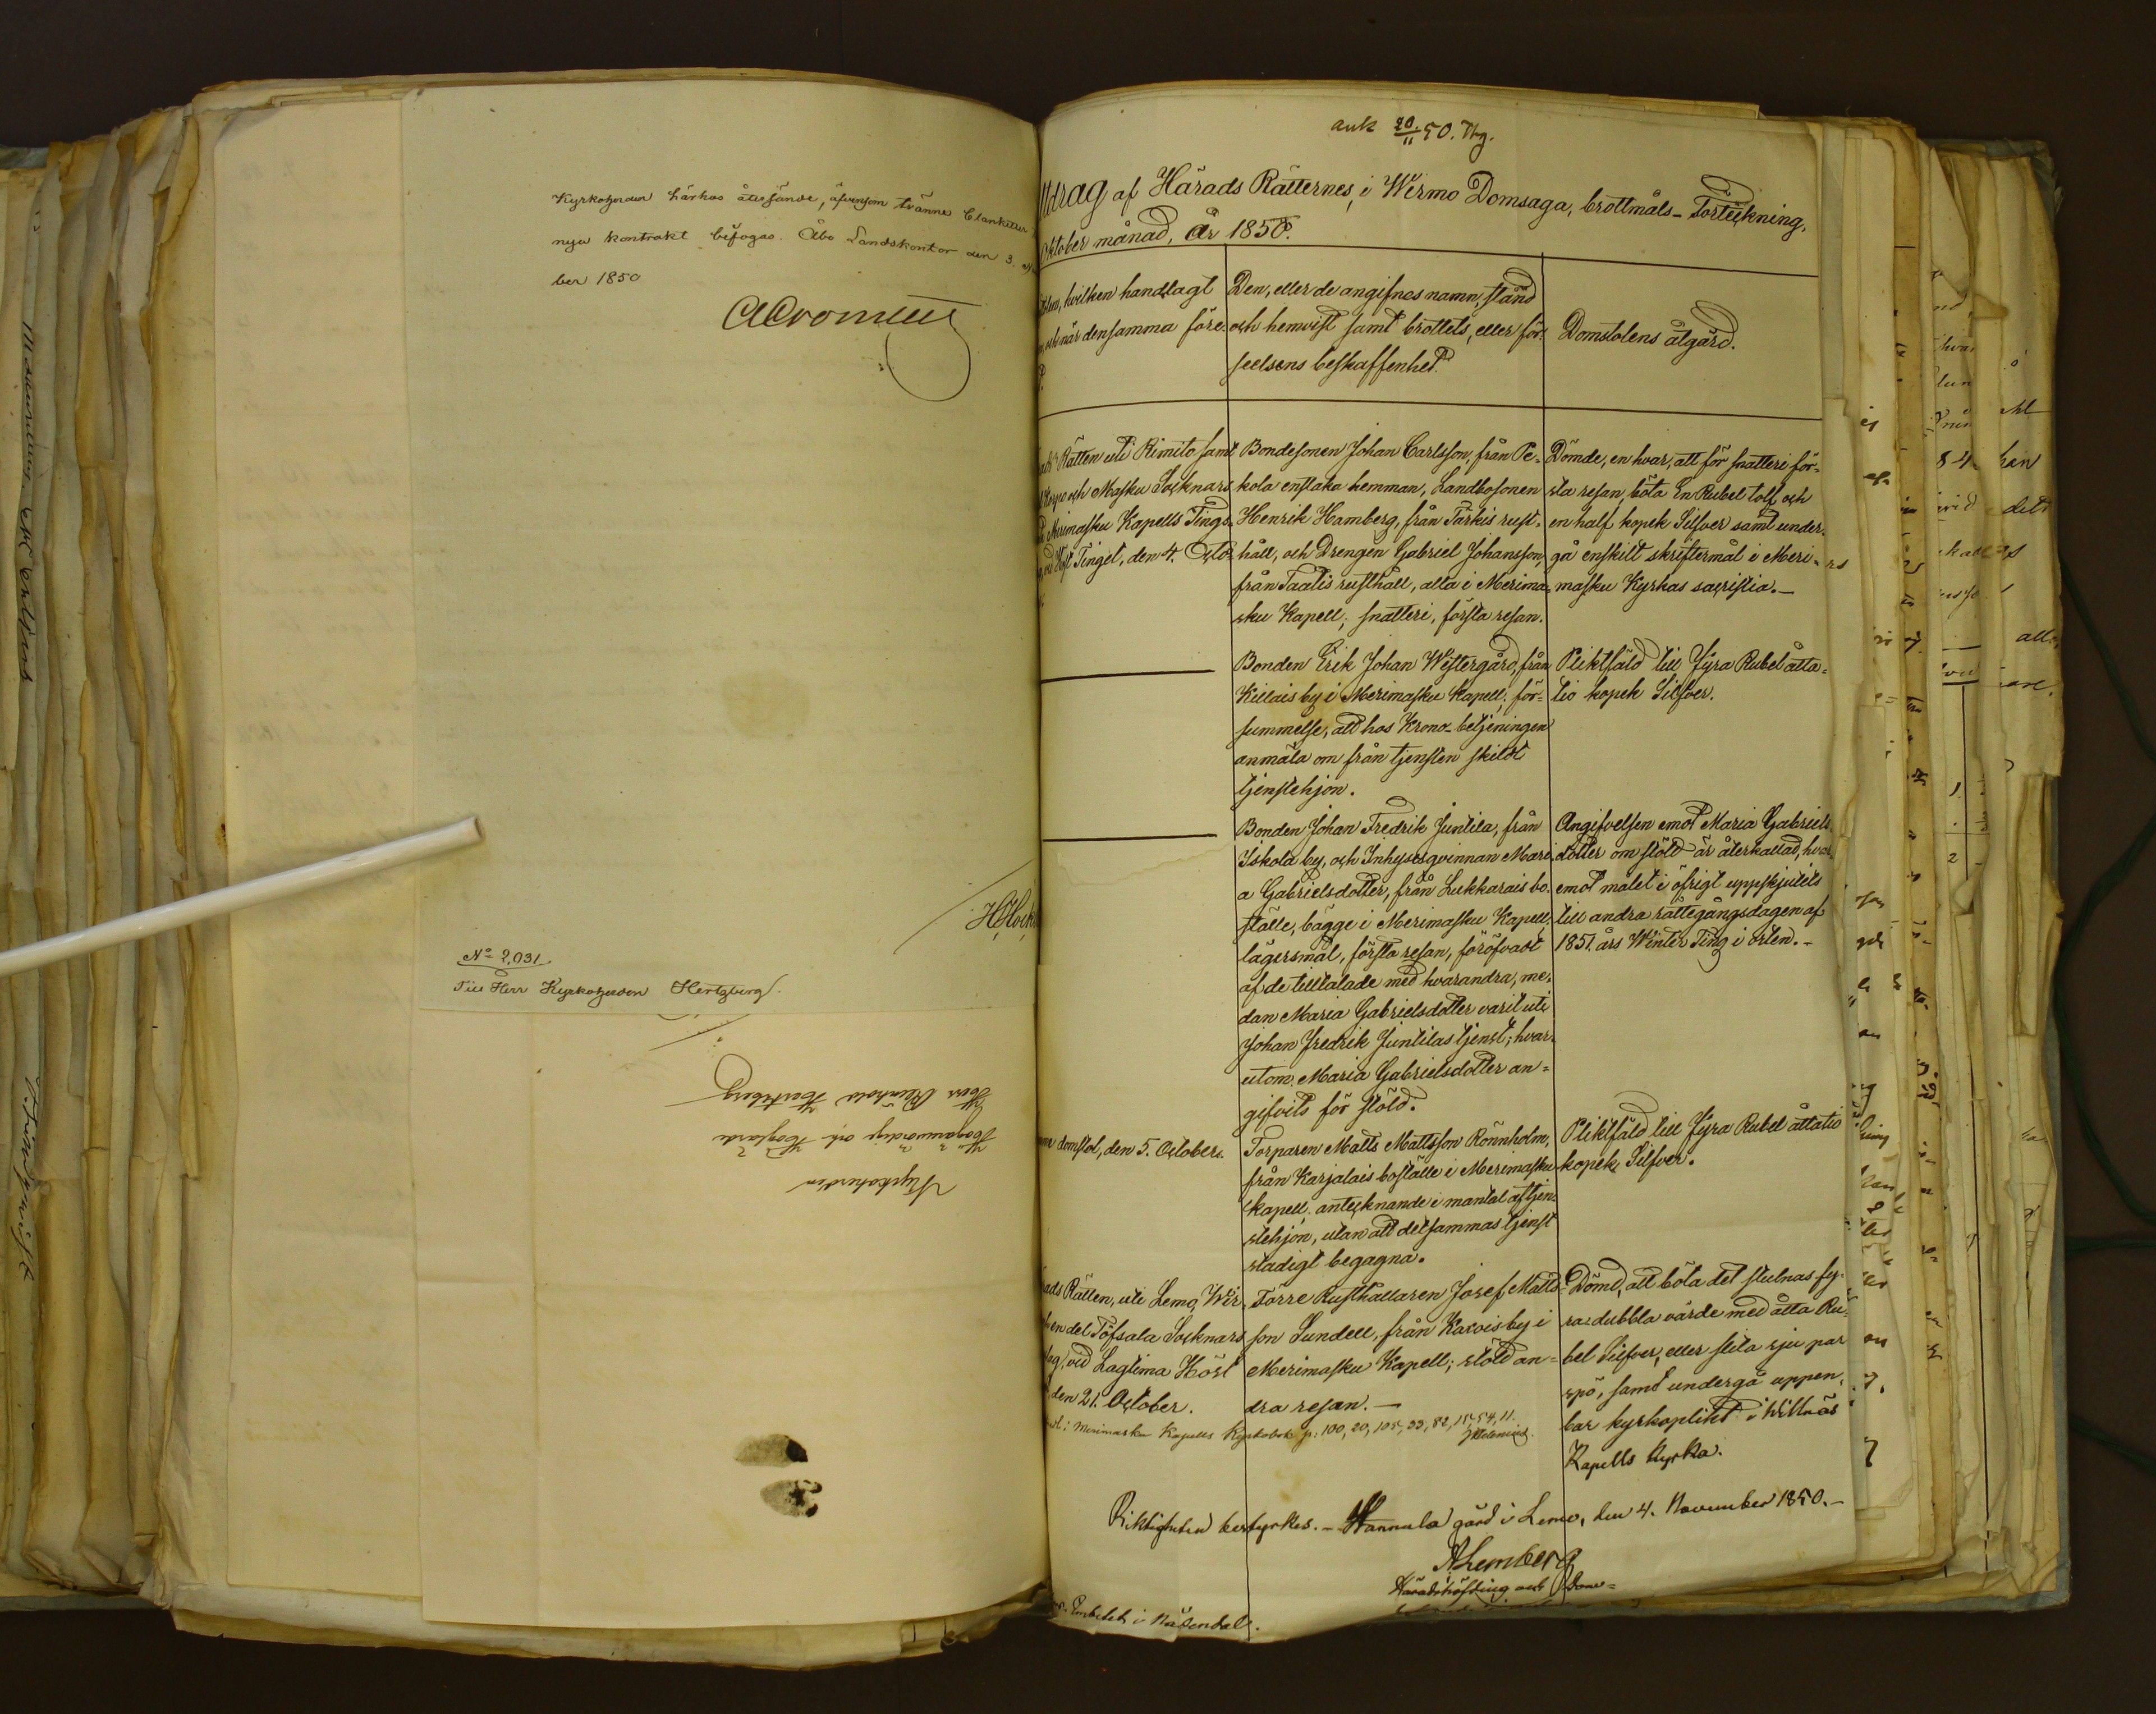 Kyrkoherden härhos återsände, äfvensom tvänne blanketter
nya kontrakt bifogas. Åbo Landskontor den 3.
ber 1850
No 2,031
Till Herr Kyrkoherden Hertzberg.
Kyrkoherden
Högärevördige och Höglärde
Herr Hertzberg
ank 20/11 50.
Utdrag af Härads Rätternes, i Wirmo Domsaga, brottmåls-Förteckning,
Oktober månad, År 1850.
hvilken handlagt
och när densamma före-
Den, eller de angifnes namn, stånd
och hemvist samt brottets, eller för-
seelsens beskaffenhet.
Domstolens åtgärd.
Rätten uti Rimito samt
Korpo och Masku Socknars
Merimasku Kapells Tings-
Höst Tinget, den 4. Octo-
Bondesonen Johan Carlsson, från Pe-
kola enstaka hemman, Landbosonen
Henrik Hamberg, från Tärkis rust-
håll, och Drengen Gabriel Johansson,
från Taatis rusthåll, alla i Merima-
sku Kapell; snatteri, första resan.
Dömde, en hvar, att för snatteri för-
sta resan, böta En Rubel tolf och
en half kopek Silfver samt under-
gå enskilt skriftermål i Meri-
masku Kyrkas sacristia.-
Bonden Erik Johan Westergård, från
Killais by i Merimasku Kapell; för-
summelse, att hos Krono-betjeningen
anmäla om från tjensten skildt
tjenstehjon.
Pliktfäld till Fyra Rubel åtta-
tio kopek Silfver.
Bonden Johan Fredrik Juntila, från
Iskola by, och Inhysesqvinnan Mari-
a Gabrielsdotter, från Lukkarais bo-
ställe, bägge i Merimasku Kapell;
lägersmål, första resan, föröfvadt
af de tilltalade med hvarandra, me-
dan Maria Gabrielsdotter varit uti
Johan Fredrik Juntilas tjenst; hvar-
utom Maria Gabrielsdotter an-
gifvits för stöld.
Angifvelsen emot Maria Gabriels
dotter om stöld är återkallad, hvar-
emot målet i öfrigt uppskjutits
till andra rättegångsdagen af
1851. års Winter Ting i orten.-
domstol, den 5. October.
Torparen Matts Mattsson Rönnholm,
från Karjalais boställe i Merimasku
kapell; antecknande i mantal af tjen-
stehjon, utan att detsammas tjenst
stadigt begagna.
Pliktfäld till Fyra Rubel åttatio
kopek Silfver.
Rätten, uti Lemo, Wir-
en del Töfsala Socknars
vid Lagtima Höst
den 21. October.
Förre Rusthållaren Josef Matts-
son Sundell, från Karvois by i
Merimasku Kapell; stöld an-
dra resan.-
Dömd, att böta det stulnas fy-
ra dubbla värde med åtta Ru-
bel Silfver, eller slita sju par
spö, samt undergå uppen-
bar kyrkoplikt i Willnäs
Kapells Kyrka.
Merimasku Kapells Kyrkobok p: 100, 20, 105, 33, 82, 15, 54, 11.
Riktigheten bestyrkes.- Wannula gård i Lemo, den 4. November 1850.-
A. Lemberg
Häradshöfding och Dom-
Embetet i Nådendal.